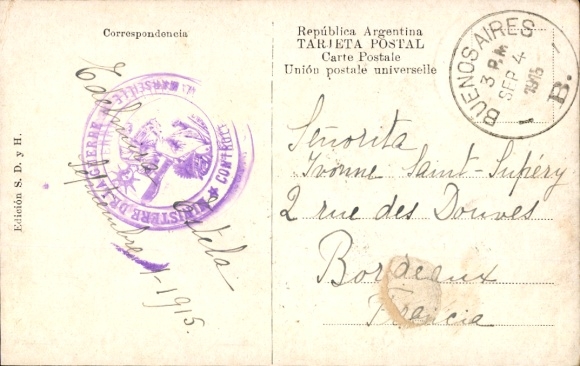 Correspondencia
República Argentina
TARJETA POSTAL
Carte Postale
Unión postale universelle
BUENOS AIRES
3 P.M
SEP 4
1915
B.
Edición S. D. y H.
MINISTERE DE LA GUERRE
MARSEILLE
CONTROLE
Adela
1-1915.
Señorita
Ivonne Saint-Supéry
2 rue des Douves
Bordeaux
Francia